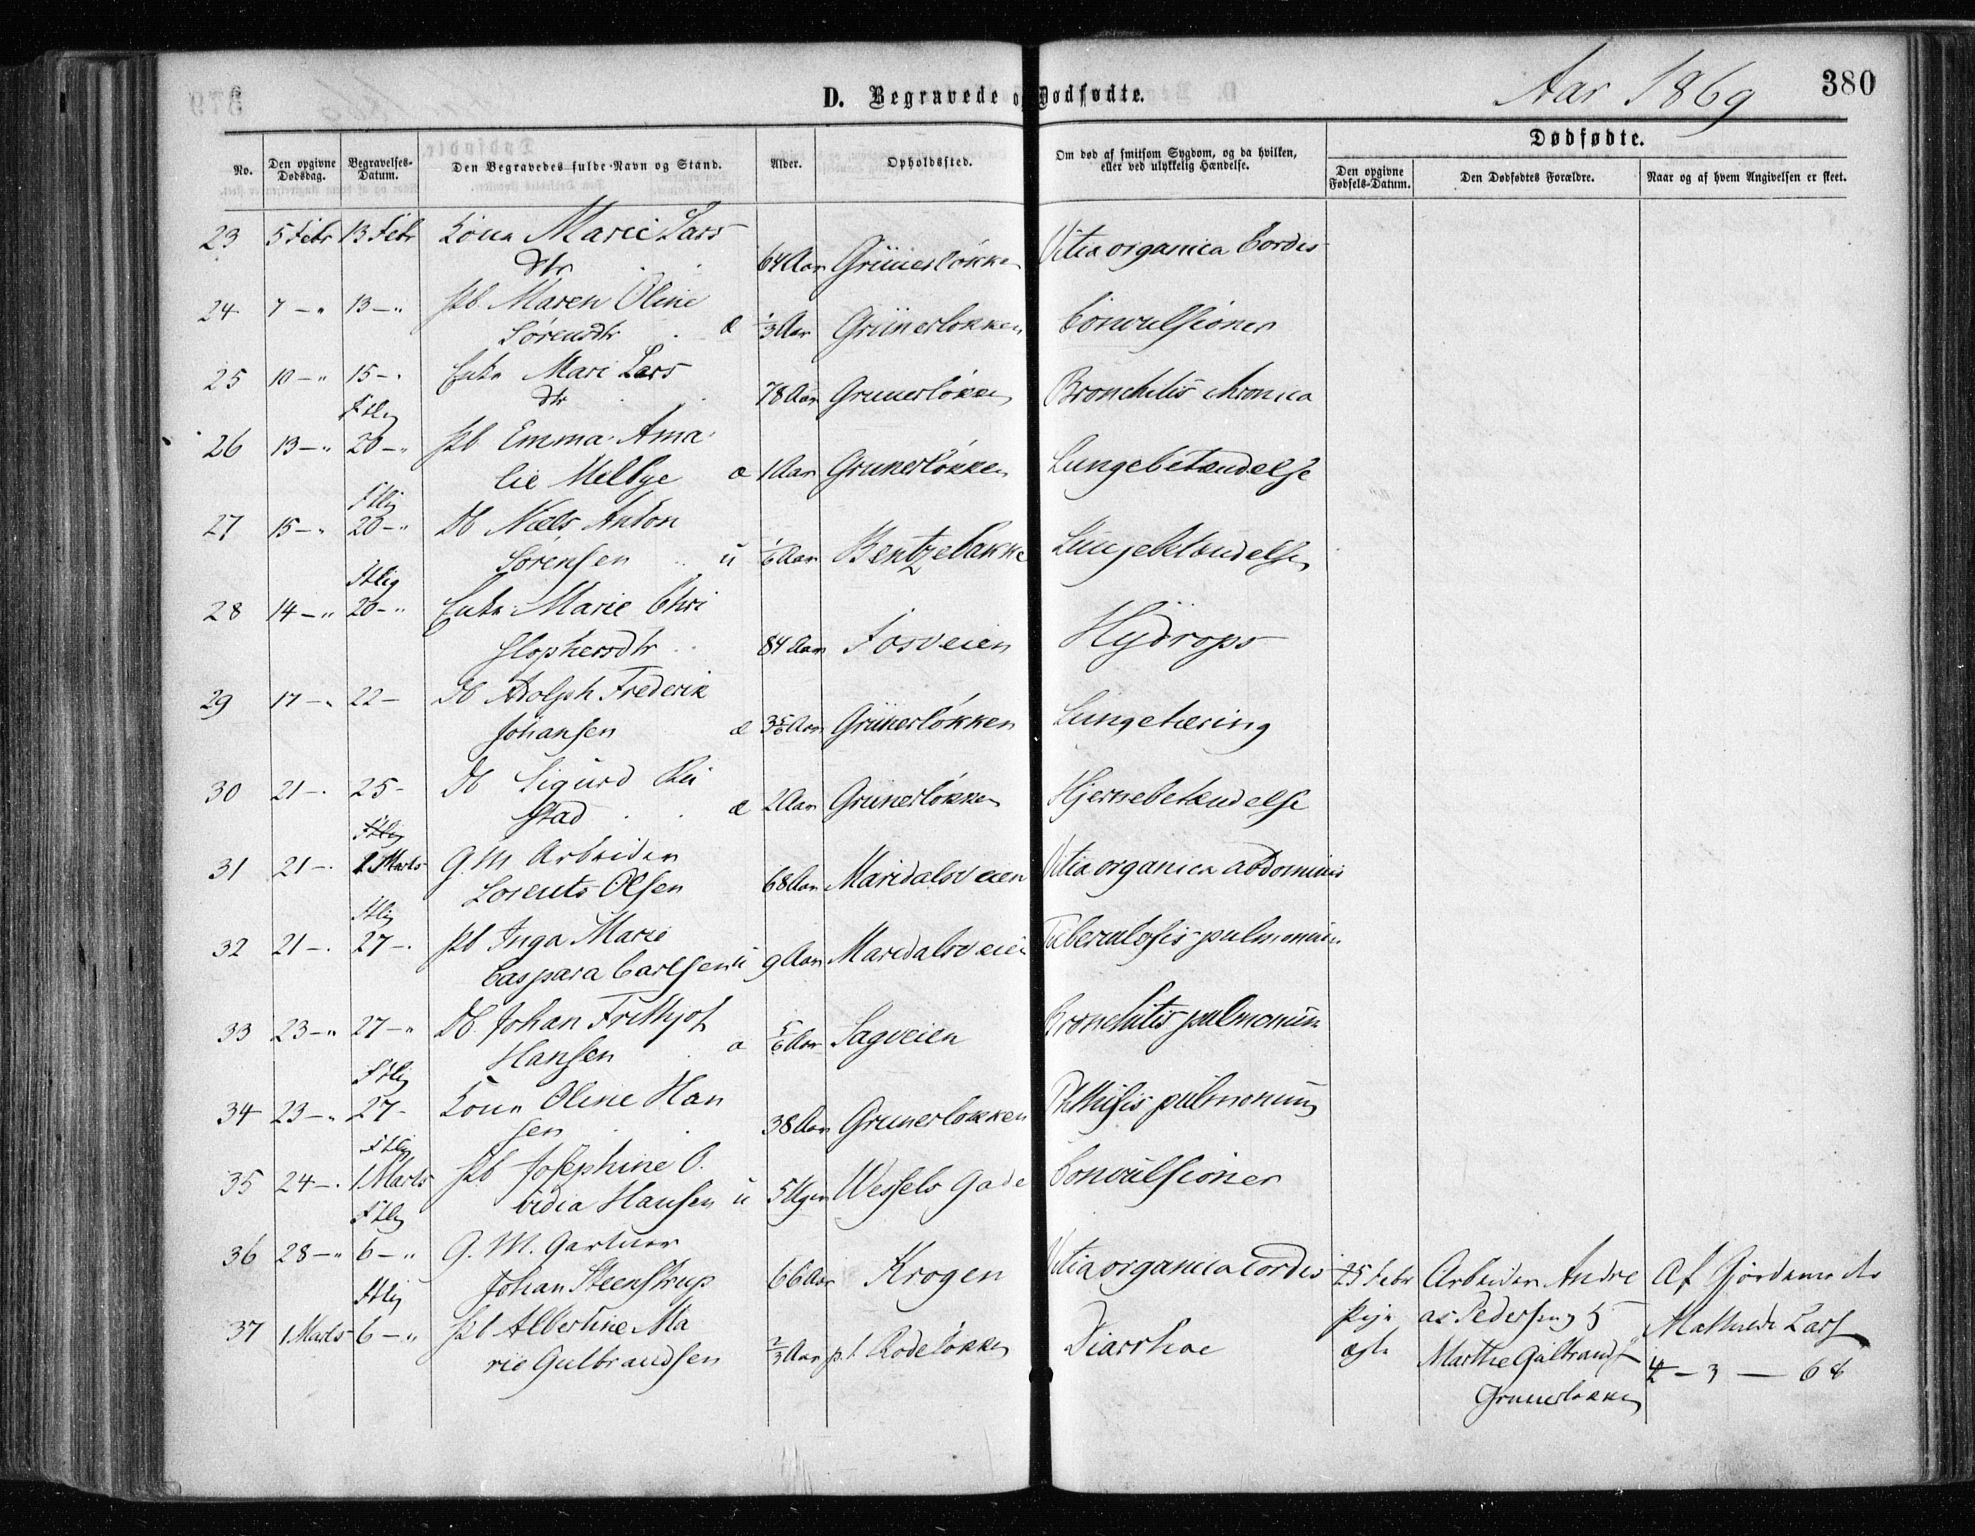 D. Begravede og Dødfødte.
Aar 1869
380
No.
Den opgivne Dødsdag.
Begravelses-Datum.
Den Begravedes fulde Navn og Stand.
Alder.
Opholdssted.
Om død af smitsom Sygdom, og da hvilken, eller ved ulykkelig Hændelse.
Dødfødte.
Den opgivne Fødsels-Datum.
Den Dødfødtes Forældre.
Naar og af hvem Angivelsen er skeet.
23 5 Febr 13 Febr Kone Marie Lars
dtr 64 Aar Grünerløkken Vitia organica Cordis
24 7 - " 13 - " Pb. Maren Oline
Sørensdtr æ 1/3 Aar Grünerløkken Convulsioner
25 10 - " 15 - " Enke Mari Lars
dtr 78 Aar Grunerløkken Bronchitis chronica
Ftlig
26 13 - " 20 - " Pb Emma Ama
lie Melbye æ 1 Aar Grunerløkken Lungebetændelse
Ftlig
27 15 - " 20 - " Db Niels Anton
Sørensen u 1/6 Aar Bentzebakke Lungebetændelse
Ftlig
28 14 - " 20 - " Enke Marie Chri
stophersdtr 84 Aar Fosveien Hydrops
29 17 - " 22 - Db Adolph Frederik
Johansen æ 3 5/6 Aar Grünerløkken Lungetæring
30 21 - " 25 - Db Sigurd Rei
stad æ 2 Aar Grünerløkken Hjernebetændelse
Ftlig
31 21 - " 1 Marts G. M. Arbeider
Lorents Olsen 68 Aar Maridalsveien Vitia organica abdominis
Ftlig
32 21 - " 27 - " Pb Inga Marie
Caspara Carlsen u 9 Aar Maridalsveien Tuberculosis pulmonum
33 23 - " 27 - " Db Johan Frithjof
Hansen æ 5/6 Aar Sagveien Bronchitis pulmonum
Ftlig
34 23 - " 27 - Kone Oline Han
sen 38 Aar Grunerløkken Phthisis pulmonum
Ftlig
35 24 - " 1 Marts Pb Josephine O.
vidia Hansen u 5 Uger Wessels Gade Convulsioner
Ftlig
36 28 - " 6 - " G. M. Gartner
Johan Steenstrup 66 Aar Krogen Vitia organica Cordis
Ftlig
37 1 Marts 6 - " Pb Albertine Ma
rie Gulbrandsen 2/3 Aar p. t. Rodeløkken Diarrhoe
25 Febr Arbeider Andre Af Gjordemodr
Pige as Pedersen og Mathilde Lars
ægte Marthe Gulbrands 4 - 3 - 68
Grunerløkken